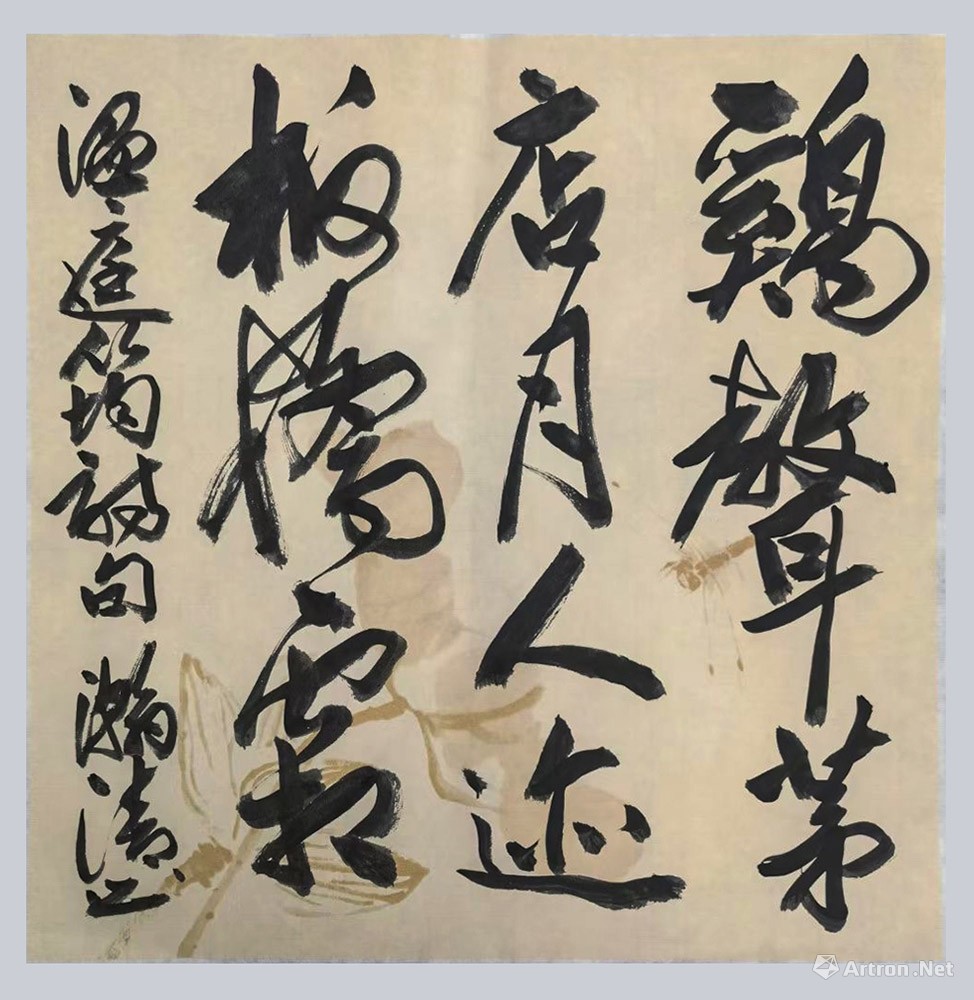 鷄聲茅
店月人迹
板橋霜
温庭筠詩句 瀚清书
Artron.Net